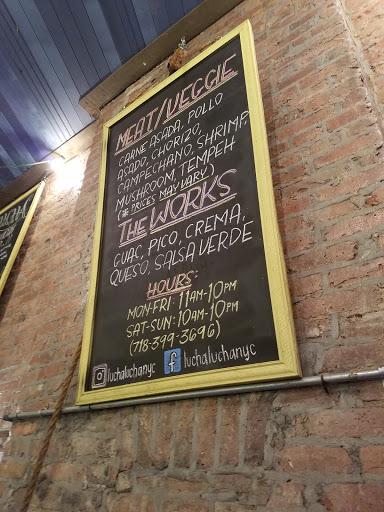 MEAT/VEGGIE
CARNE ASADA, POLLO
ASADO, CHORIZO,
CAMPECHANO, SHRIMP,
MUSHROOM, TEMPEH
(* PRICES MAY VARY)
THE WORKS
GUAC, PICO, CREMA,
QUESO, SALSA VERDE
HOURS:
MON-FRI: 11AM-10PM
SAT-SUN: 10AM-10PM
(718-399-3696)
luchaluchanyc f luchaluchanyc